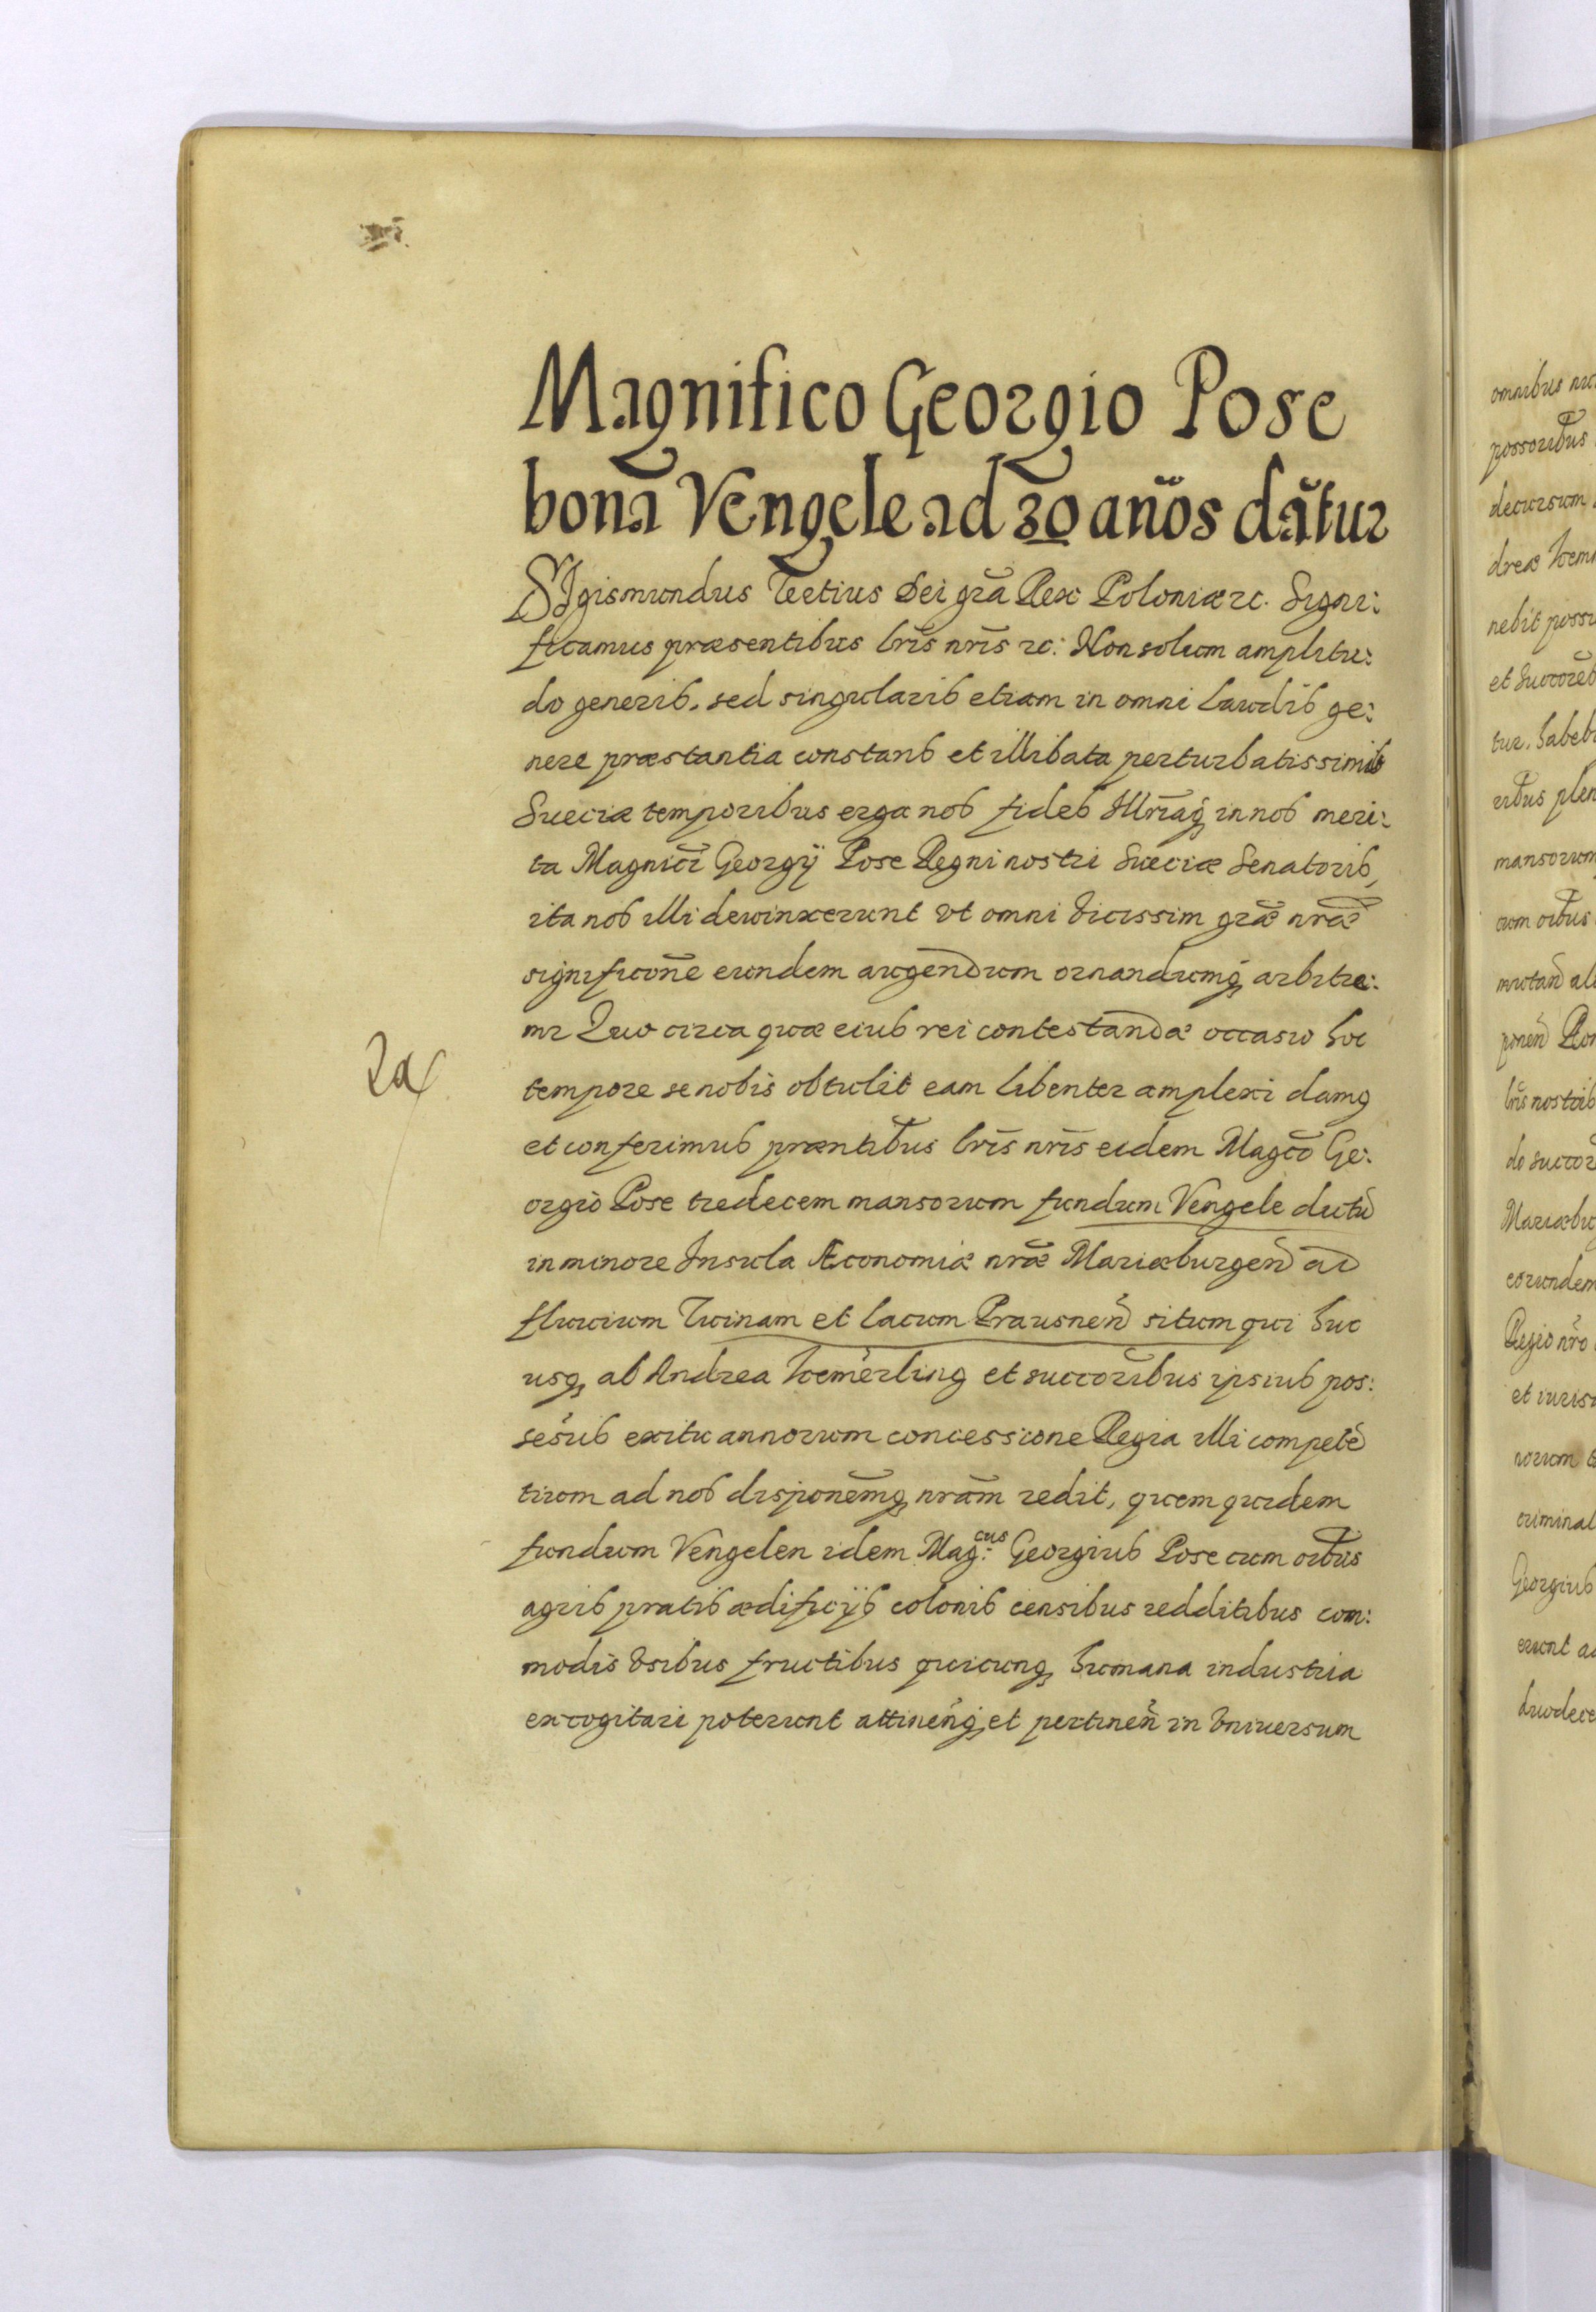 Magnifico Georgio Pose
bona Vengele ad 30 años dãtur
SIgismundus Tertius Dei gr̃a Rex Poloniæ ꝛc. Signi:
ficamus præsentibus lr̃is nr̃is ꝛc: Non solum amplitu:
do generis, sed singularis etiam in omni laudis ge:
nere præstantia constans et illibata perturbatissimis
Sueciæ temporibus erga nos fides Illr̃iaq̃ in nos meri:
ta Magnici Georgÿ Pose Regni nostri Sueciæ Senatoris,
ita nos illi devinxerunt vt omni vicissim gr̃æ nr̃æ
significoñe eundem augendum ornandumq̨ arbitre:
mr Quo circa quæ eius rei contestandæ occasio hoc
tempore se nobis obtulit eam libenter amplexi damꝰ
et conferimus præntib̃us lr̃is nr̃is eidem Magc̃o Ge:
orgio Pose tredecem mansorum fundum Vengele dictũ
in minore Insula Æconomiæ nr̃æ Mariæburgeñ ad
fluvium Tuinam et lacum Prausneñ situm qui huc
usq̨ ab Andrea Kemerling et succorĩbus ipsius pos:
sesus exitu annorum concessione Regia illi competẽ
tium ad nos disponẽmq̨ nr̃am redit, quem quidem
fundum Vengelen idem Mag:cus Georgius Pose cum oĩbus
agris pratis ædificÿs colonis censibus redditibus com:
modis vsibus fructibus quicunq̨ humana industria
excogitari poterunt attineñq̨ et pertineñ in vniversum
2a
omnibus
possorib̃us
decursum
dreæ Kem
nebit possi
et Succorẽs
tur. habeb
rib̃us plen
mansorum
cum oib̃us
mutañ al
poneñ
lr̃is nostris
do succor
Mariæbu
eorundem
Regio nr̃o
et iuris
norum
criminal
Georgius
erunt a
duodece